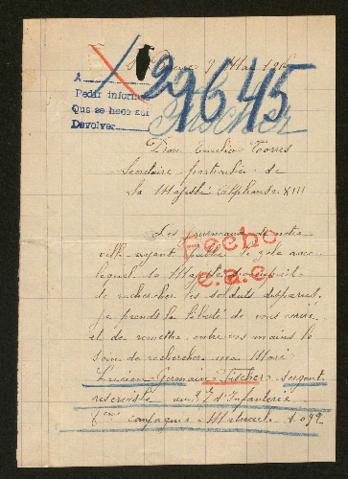 9 Mai 191
229645
A
Pedir inform
Que se hace sa
Devolver
Fischer
Don Emilio Torres
Secrétaire particulier de
Sa Majesté Alphonse XIII
Les journaux de notre
ville ayant publié le zèle avec
lequel sa Majesté
de rechercher les soldats disparus,
je prends la liberté de vous
et de remettre entre vos mains le
soin de rechercher mon Mari
Lucien Germain Fischer sergent
réserviste au 37 d'Infanterie
compagnie Matricule 1.099
Fecho
c.a.c